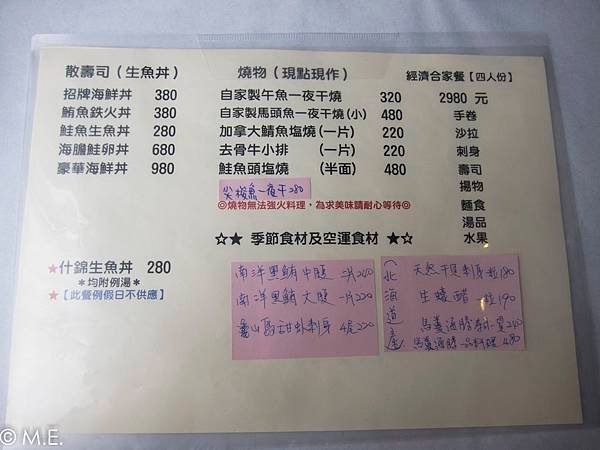 散壽司(生魚丼)
招牌海鮮丼 380
鮪魚鉄火丼 380
鮭魚生魚丼 280
海膽鮭卵丼 680
豪華海鮮丼 980
★什錦生魚丼 280
*均附例湯*
★【此餐例假日不供應】
燒物(現點現作)
自家製午魚一夜干燒 320
自家製馬頭魚一夜干燒(小) 480
加拿大鯖魚塩燒(一片) 220
去骨牛小排 (一片) 220
鮭魚頭塩燒 (半面) 480
尖梭魚一夜干280
◎燒物無法強火料理,為求美味請耐心等待◎
經濟合家餐【四人份】
2980 元
手卷
沙拉
刺身
壽司
揚物
麵食
湯品
水果
☆★ 季節食材及空運食材 ★☆
南洋黑鮪中腹 一片200
南洋黑鮪大腹 一片220
龜山島甜蝦刺身 4尾220
(北海道產)
天然干貝刺身 一粒180
生蠔醋 一粒190
馬糞海膽 240
馬糞海膽 一品料理 480
© M.E.